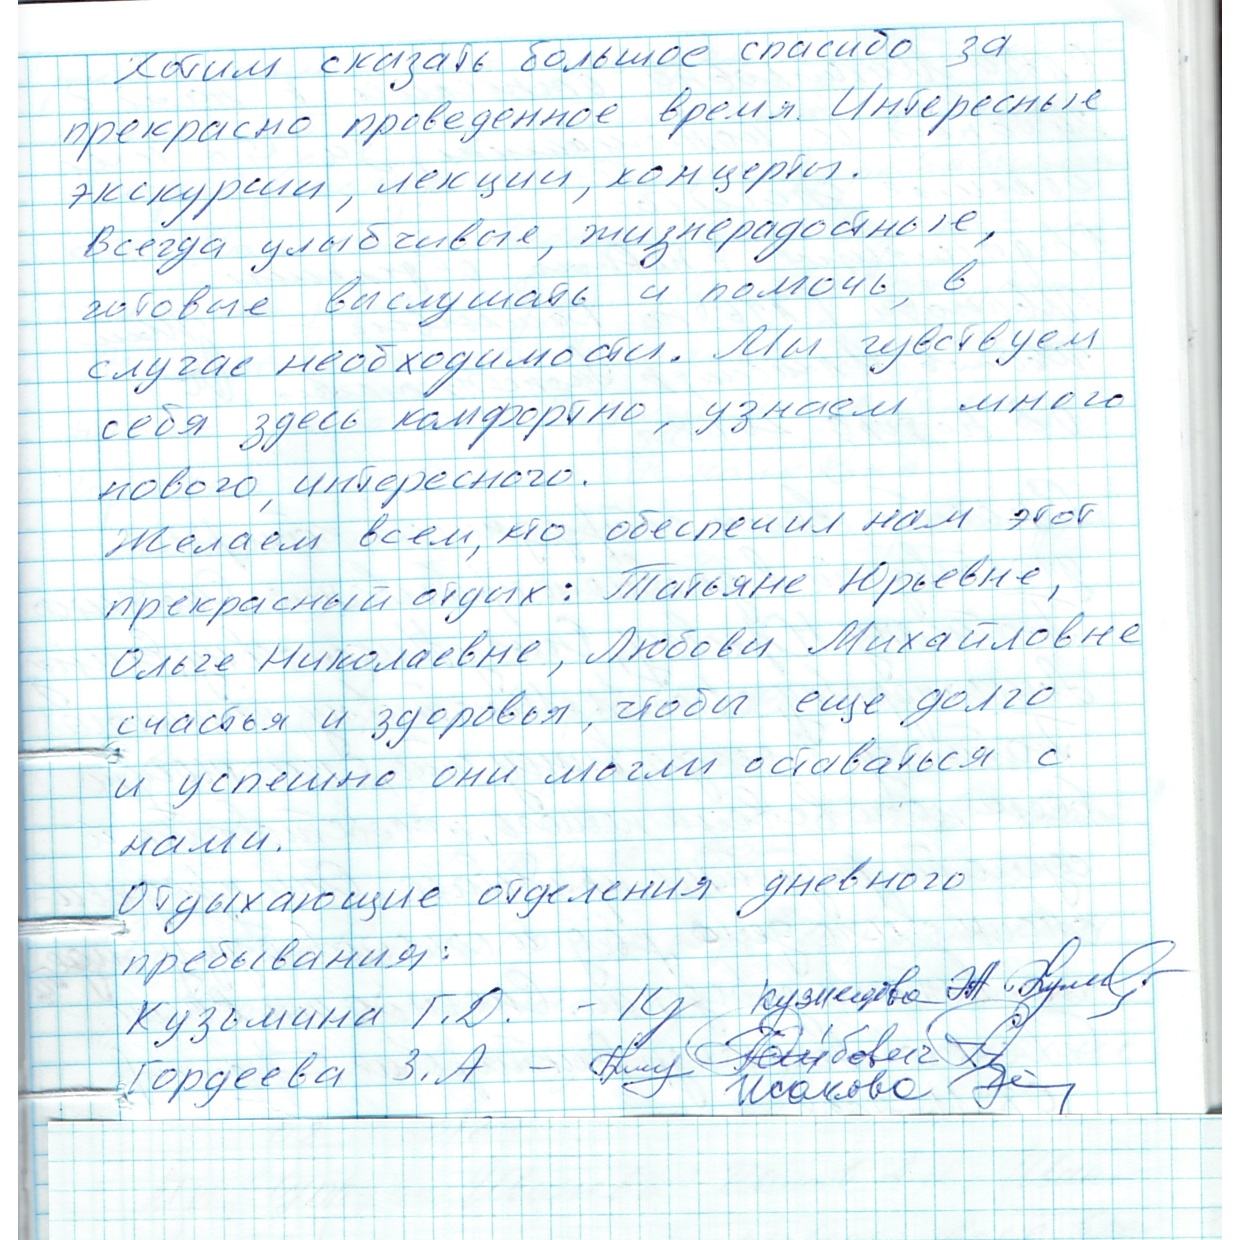 Хотим сказать большое спасибо за
прекрасно проведенное время. Интересные
экскурсии, лекции, концерты.
Всегда улыбчивые, жизнерадостные,
готовые выслушать и помочь, в
случае необходимости. Мы чувствуем
себя здесь комфортно, узнаем много
нового, интересного.
Желаем всем, кто обеспечил нам этот
прекрасный отдых: Татьяне Юрьевне,
Ольге Николаевне, Любови Михайловне
счастья и здоровья, чтобы еще долго
и успешно они могли оставаться с
нами.
Отдыхающие отделения дневного
пребывания:
Кузьмина Г.Д. -
Кузнецова
Гордеева З.А -
Исакова